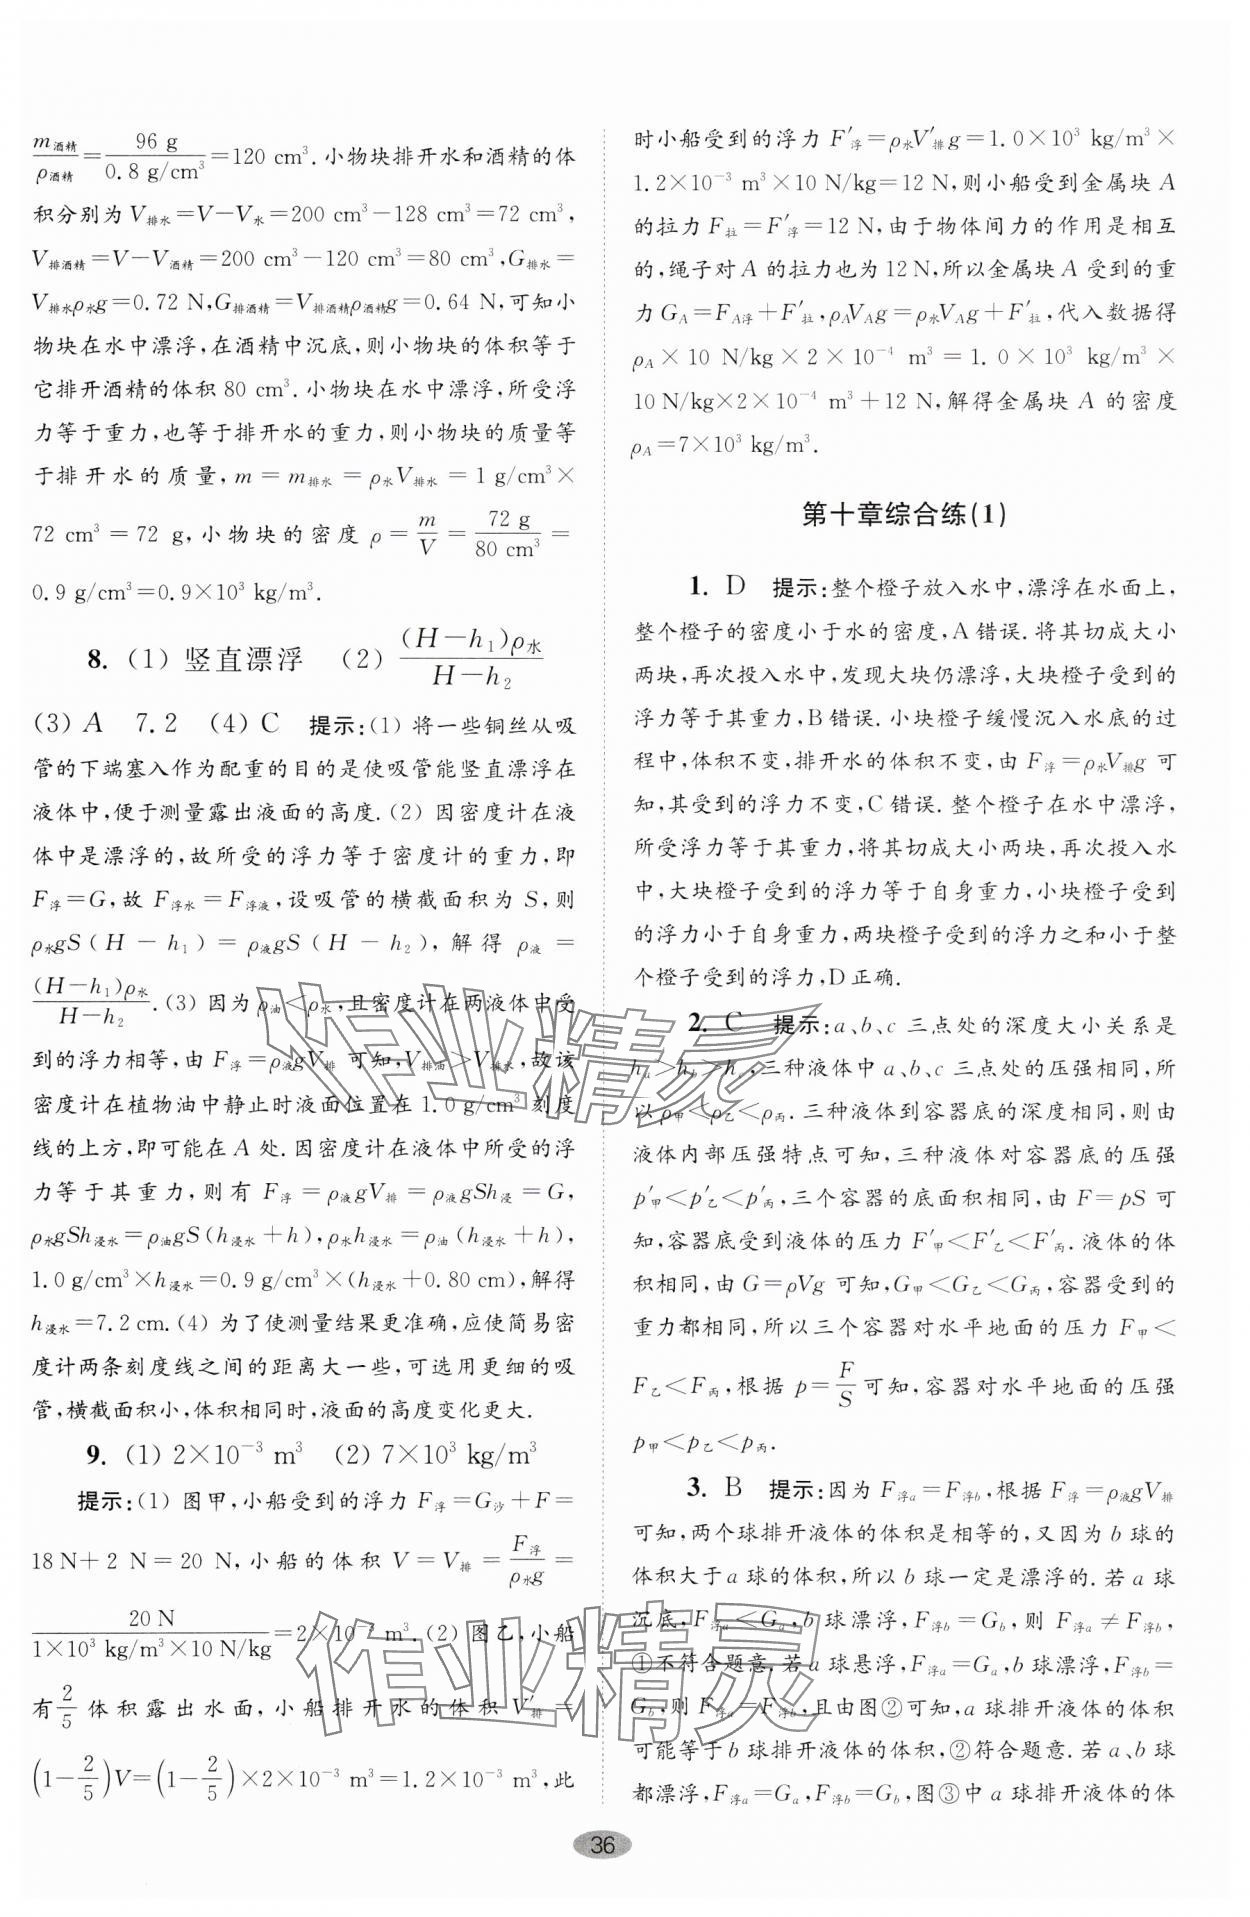 m酒精/ρ酒精=96 g/0.8 g/cm³=120 cm³.小物块排开水和酒精的体
积分别为V排水=V−V水=200 cm³−128 cm³=72 cm³,
V排酒精=V−V酒精=200 cm³−120 cm³=80 cm³,G排水=
V排水ρ水g=0.72 N,G排酒精=V排酒精ρ酒精g=0.64 N,可知小
物块在水中漂浮,在酒精中沉底,则小物块的体积等于
它排开酒精的体积80 cm³.小物块在水中漂浮,所受浮
力等于重力,也等于排开水的重力,则小物块的质量等
于排开水的质量,m=m排水=ρ水V排水=1 g/cm³×
72 cm³=72 g,小物块的密度ρ=m/V=72 g/80 cm³=
0.9 g/cm³=0.9×10³ kg/m³.
8.(1)竖直漂浮 (2)(H−h₁)ρ水/H−h₂
(3)A 7.2 (4)C 提示:(1)将一些铜丝从吸
管的下端塞入作为配重的目的是使吸管能竖直漂浮在
液体中,便于测量露出液面的高度.(2)因密度计在液
体中是漂浮的,故所受的浮力等于密度计的重力,即
F浮=G,故F浮水=F浮液,设吸管的横截面积为S,则
ρ水gS(H−h₁)=ρ液gS(H−h₂),解得ρ液=
(H−h₁)ρ水/H−h₂.(3)因为ρ油<ρ水,且密度计在两液体中受
到的浮力相等,由F浮=ρ液gV排可知,V排油>V排水,故该
密度计在植物油中静止时液面位置在1.0 g/cm³刻度
线的上方,即可能在A处.因密度计在液体中所受的浮
力等于其重力,则有F浮=ρ液gV排=ρ液gSh浸=G,
ρ水gSh浸水=ρ油gS(h浸水+h),ρ水h浸水=ρ油(h浸水+h),
1.0 g/cm³×h浸水=0.9 g/cm³×(h浸水+0.80 cm),解得
h浸水=7.2 cm.(4)为了使测量结果更准确,应使简易密
度计两条刻度线之间的距离大一些,可选用更细的吸
管,横截面积小,体积相同时,液面的高度变化更大.
9.(1)2×10⁻³ m³ (2)7×10³ kg/m³
提示:(1)图甲,小船受到的浮力F浮=G沙+F=
18 N+2 N=20 N,小船的体积V=V排=F浮/ρ水g=
20 N/1×10³ kg/m³×10 N/kg=2×10⁻³ m³.(2)图乙,小船
有2/5体积露出水面,小船排开水的体积V′排=
(1−2/5)V=(1−2/5)×2×10⁻³ m³=1.2×10⁻³ m³,此
时小船受到的浮力F′浮=ρ水V′排g=1.0×10³ kg/m³×
1.2×10⁻³ m³×10 N/kg=12 N,则小船受到金属块A
的拉力F拉=F′浮=12 N,由于物体间力的作用是相互
的,绳子对A的拉力也为12 N,所以金属块A受到的重
力G_A=F_A浮+F′拉,ρ_AV_Ag=ρ水V_Ag+F′拉,代入数据得
ρ_A×10 N/kg×2×10⁻⁴ m³=1.0×10³ kg/m³×
10 N/kg×2×10⁻⁴ m³+12 N,解得金属块A的密度
ρ_A=7×10³ kg/m³.
第十章综合练(1)
1. D 提示:整个橙子放入水中,漂浮在水面上,
整个橙子的密度小于水的密度,A错误.将其切成大小
两块,再次投入水中,发现大块仍漂浮,大块橙子受到的
浮力等于其重力,B错误.小块橙子缓慢沉入水底的过
程中,体积不变,排开水的体积不变,由F浮=ρ水V排g可
知,其受到的浮力不变,C错误.整个橙子在水中漂浮,
所受浮力等于其重力,将其切成大小两块,再次投入水
中,大块橙子受到的浮力等于自身重力,小块橙子受到
的浮力小于自身重力,两块橙子受到的浮力之和小于整
个橙子受到的浮力,D正确.
2. C 提示:a、b、c三点处的深度大小关系是
h_a>h_b>h_c,三种液体中a、b、c三点处的压强相同,所
以ρ甲<ρ乙<ρ丙.三种液体到容器底的深度相同,则由
液体内部压强特点可知,三种液体对容器底的压强
p′甲<p′乙<p′丙,三个容器的底面积相同,由F=pS可
知,容器底受到液体的压力F′甲<F′乙<F′丙.液体的体
积相同,由G=ρVg可知,G甲<G乙<G丙,容器受到的
重力都相同,所以三个容器对水平地面的压力F甲<
F乙<F丙,根据p=F/S可知,容器对水平地面的压强
p甲<p乙<p丙.
3. B 提示:因为F浮a=F浮b,根据F浮=ρ液gV排
可知,两个球排开液体的体积是相等的,又因为b球的
体积大于a球的体积,所以b球一定是漂浮的.若a球
沉底,F浮a<G_a,b球漂浮,F浮b=G_b,则F浮a≠F浮b,
①不符合题意.若a球悬浮,F浮a=G_a,b球漂浮,F浮b=
G_b,则F浮a=F浮b,且由图②可知,a球排开液体的体积
可能等于b球排开液体的体积,②符合题意.若a、b球
都漂浮,F浮a=G_a,F浮b=G_b,图③中a球排开液体的体
36
作业精灵
作业精灵